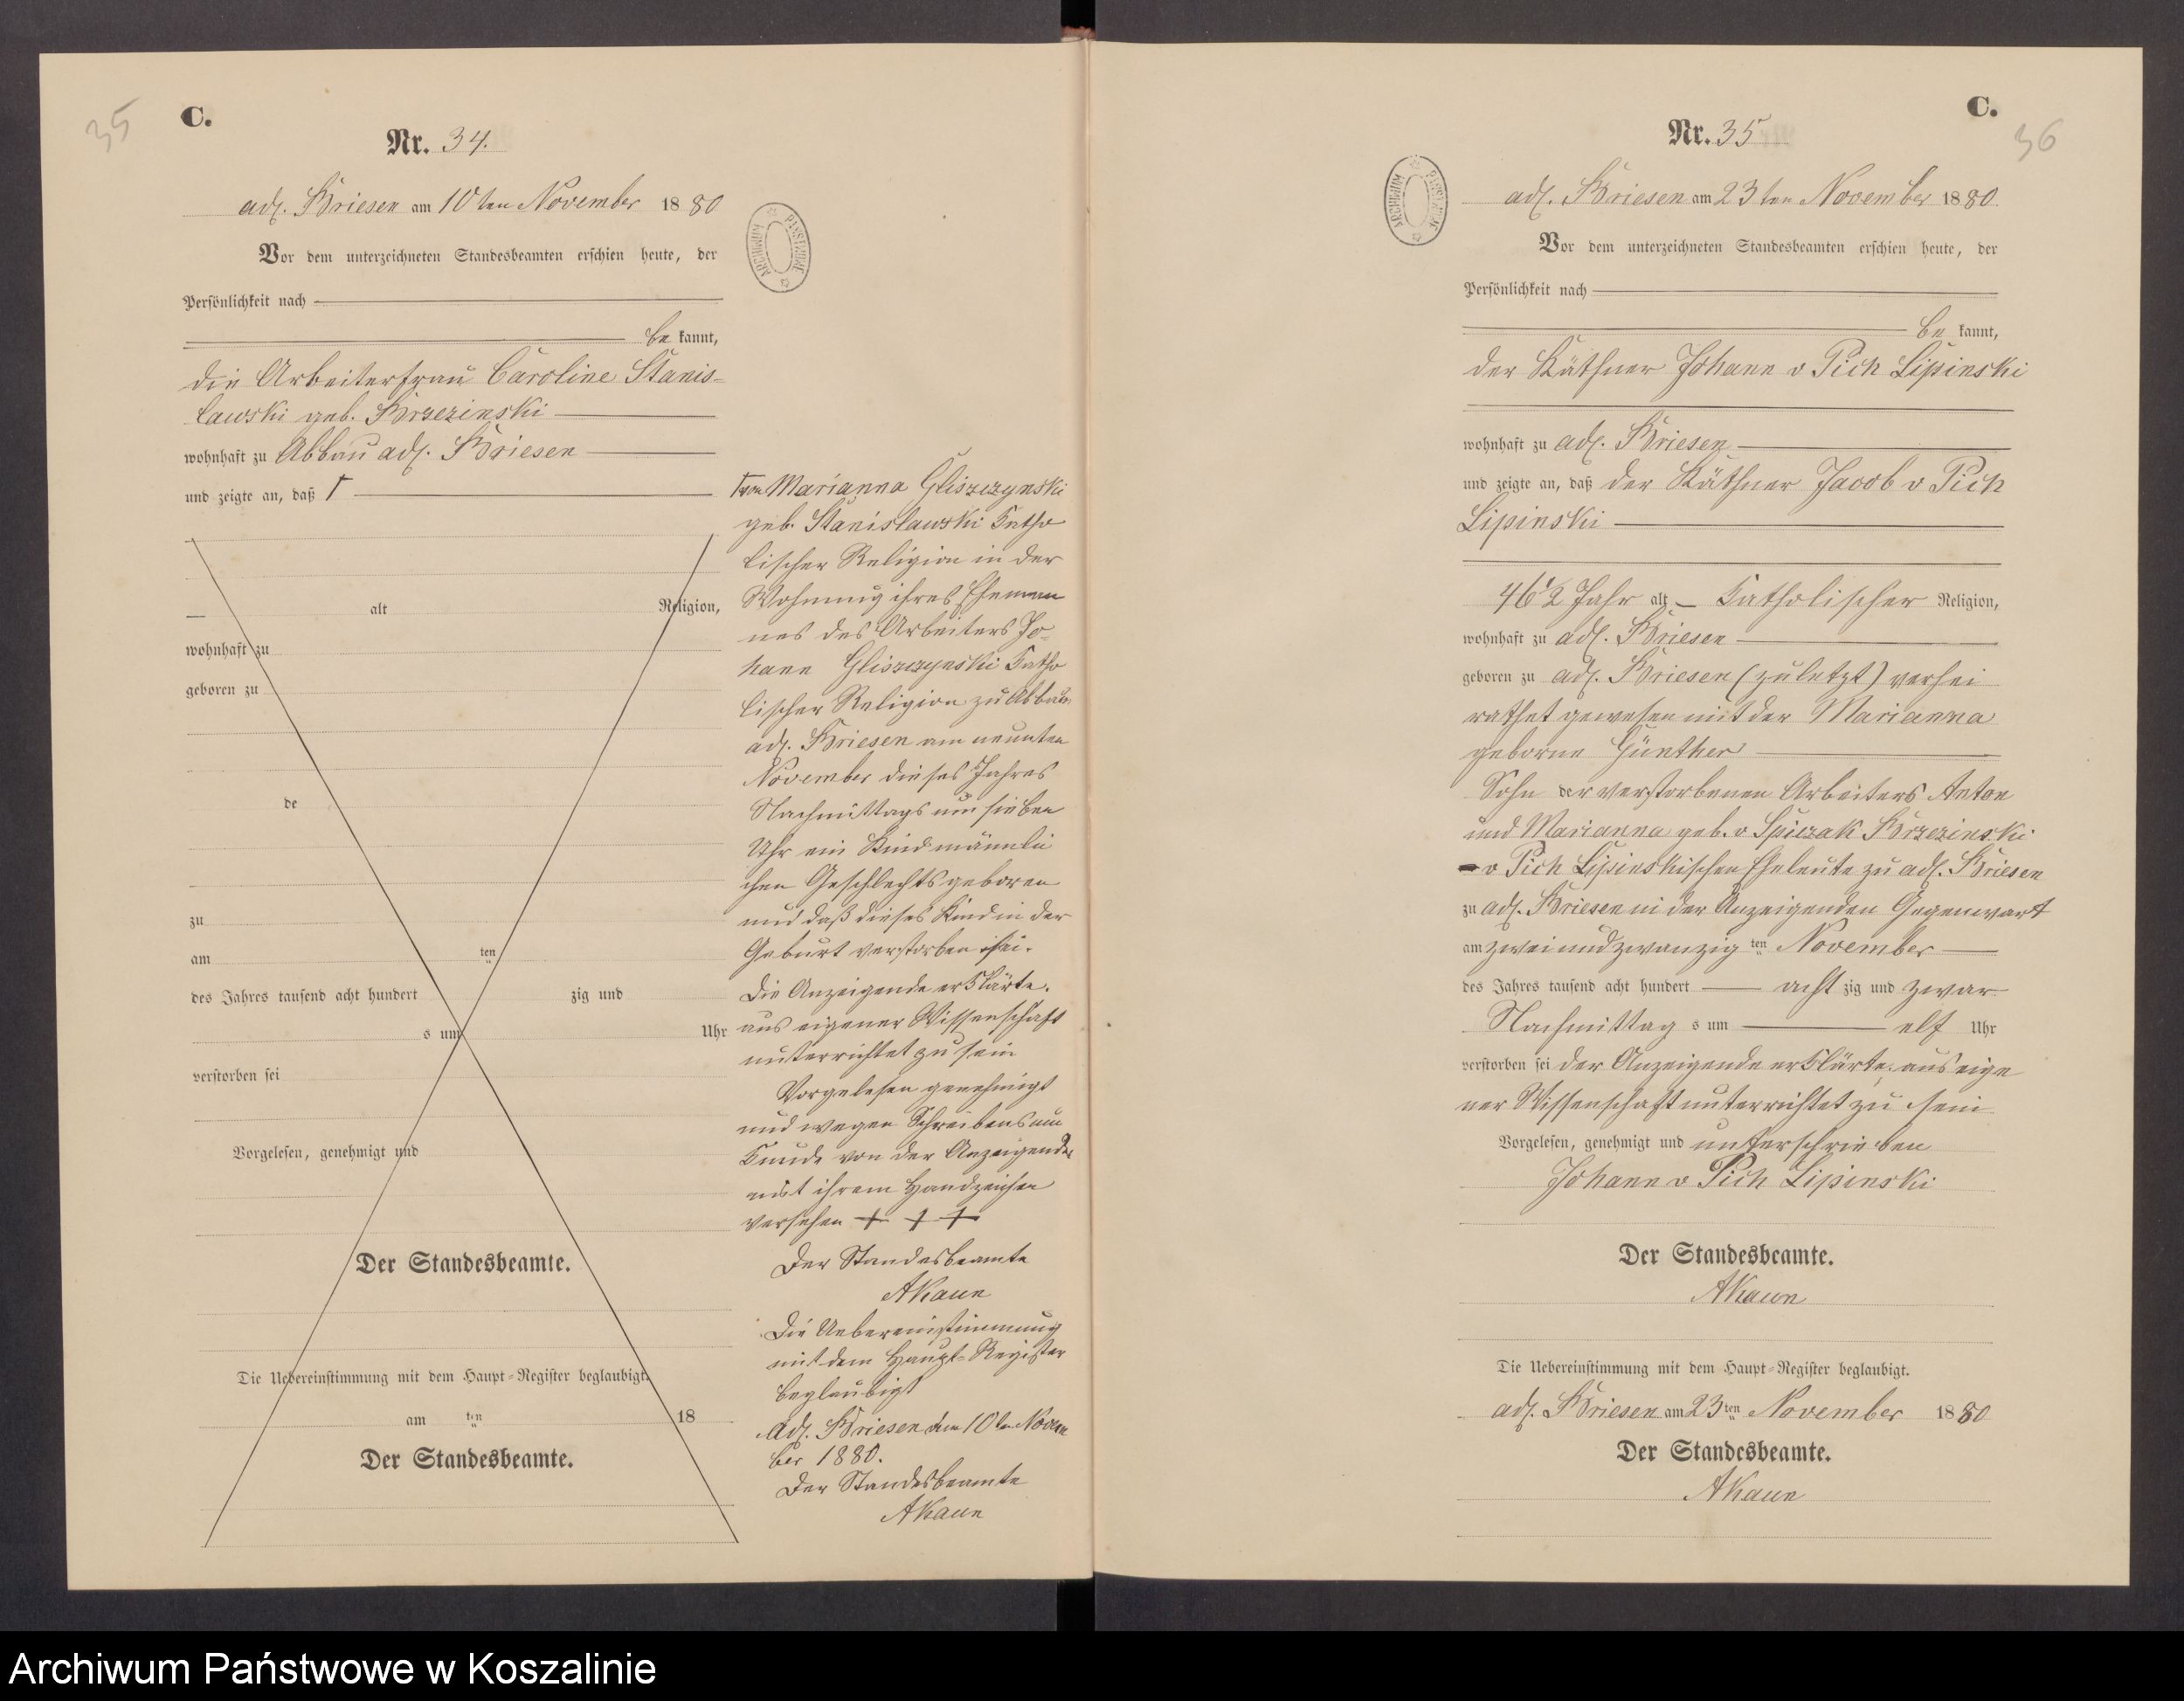 35
C.
Nr. 34.
adl. Briesen am 10ten November 1880
Vor dem unterzeichneten Standesbeamten erschien heute, der
Persönlichkeit nach
be kannt,
die Arbeiterfrau Caroline Stanis-
lawski geb. Brzezinski
wohnhaft zu Abbau adl. Briesen
und zeigte an, daß Γ
alt Religion,
wohnhaft zu
geboren zu
de
zu
am ten
des Jahres tausend acht hundert zig und
s um Uhr
verstorben sei
Vorgelesen, genehmigt und
Der Standesbeamte.
Die Uebereinstimmung mit dem Haupt-Register beglaubigt.
am ten 18
Der Standesbeamte.
ARCHIWUM PAŃSTWOWE
Γ von Marianna Gliszczynski
geb. Stanislawski katho
lischer Religion in der
Wohnung ihres Eheman
nes des Arbeiters Jo-
hann Gliszczynski katho
lischer Religion zu Abbau
adl. Briesen am neunten
November dieses Jahres
Nachmittags um sieben
Uhr ein Kind männli
chen Geschlechts geboren
und daß dieses Kind in der
Geburt verstorben sei.
Die Anzeigende erklärte,
aus eigener Wissenschaft
unterrichtet zu sein
Vorgelesen genehmigt
und wegen Schreibensun
kunde von der Anzeigenden
mit ihrem Handzeichen
versehen + + +
Der Standesbeamte
AKaun
Die Uebereinstimmung
mit dem Haupt-Register
beglaubigt
Adl. Briesen den 10ten Novem
ber 1880.
Der Standesbeamte
AKaun
C.
36
Nr. 35
ARCHIWUM PAŃSTWOWE
adl. Briesen am 23ten November 1880.
Vor dem unterzeichneten Standesbeamten erschien heute, der
Persönlichkeit nach
be kannt,
der Käthner Johann v Pich Lipinski
wohnhaft zu adl. Briesen
und zeigte an, daß der Käthner Jacob v Pich
Lipinski
46 1/2 Jahr alt katholischer Religion,
wohnhaft zu adl. Briesen
geboren zu adl. Briesen (zuletzt) verhei
rathet gewesen mit der Marianna
geborne Günther
Sohn der verstorbenen Arbeiters Anton
und Marianna geb. v Spiczak Brzezinski
v Pich Lipinskischen Eheleute zu adl. Briesen
zu adl. Briesen in der Anzeigenden Gegenwart
am zwei und zwanzig ten November
des Jahres tausend acht hundert acht zig und zwar
Nachmittag s um elf Uhr
verstorben sei der Anzeigende erklärte, aus eige
ner Wissenschaft unterrichtet zu sein
Vorgelesen, genehmigt und unterschrieben
Johann v Pich Lipinski
Der Standesbeamte.
AKaun
Die Uebereinstimmung mit dem Haupt-Register beglaubigt.
adl. Briesen am 23ten November 1880
Der Standesbeamte.
AKaun
Archiwum Państwowe w Koszalinie